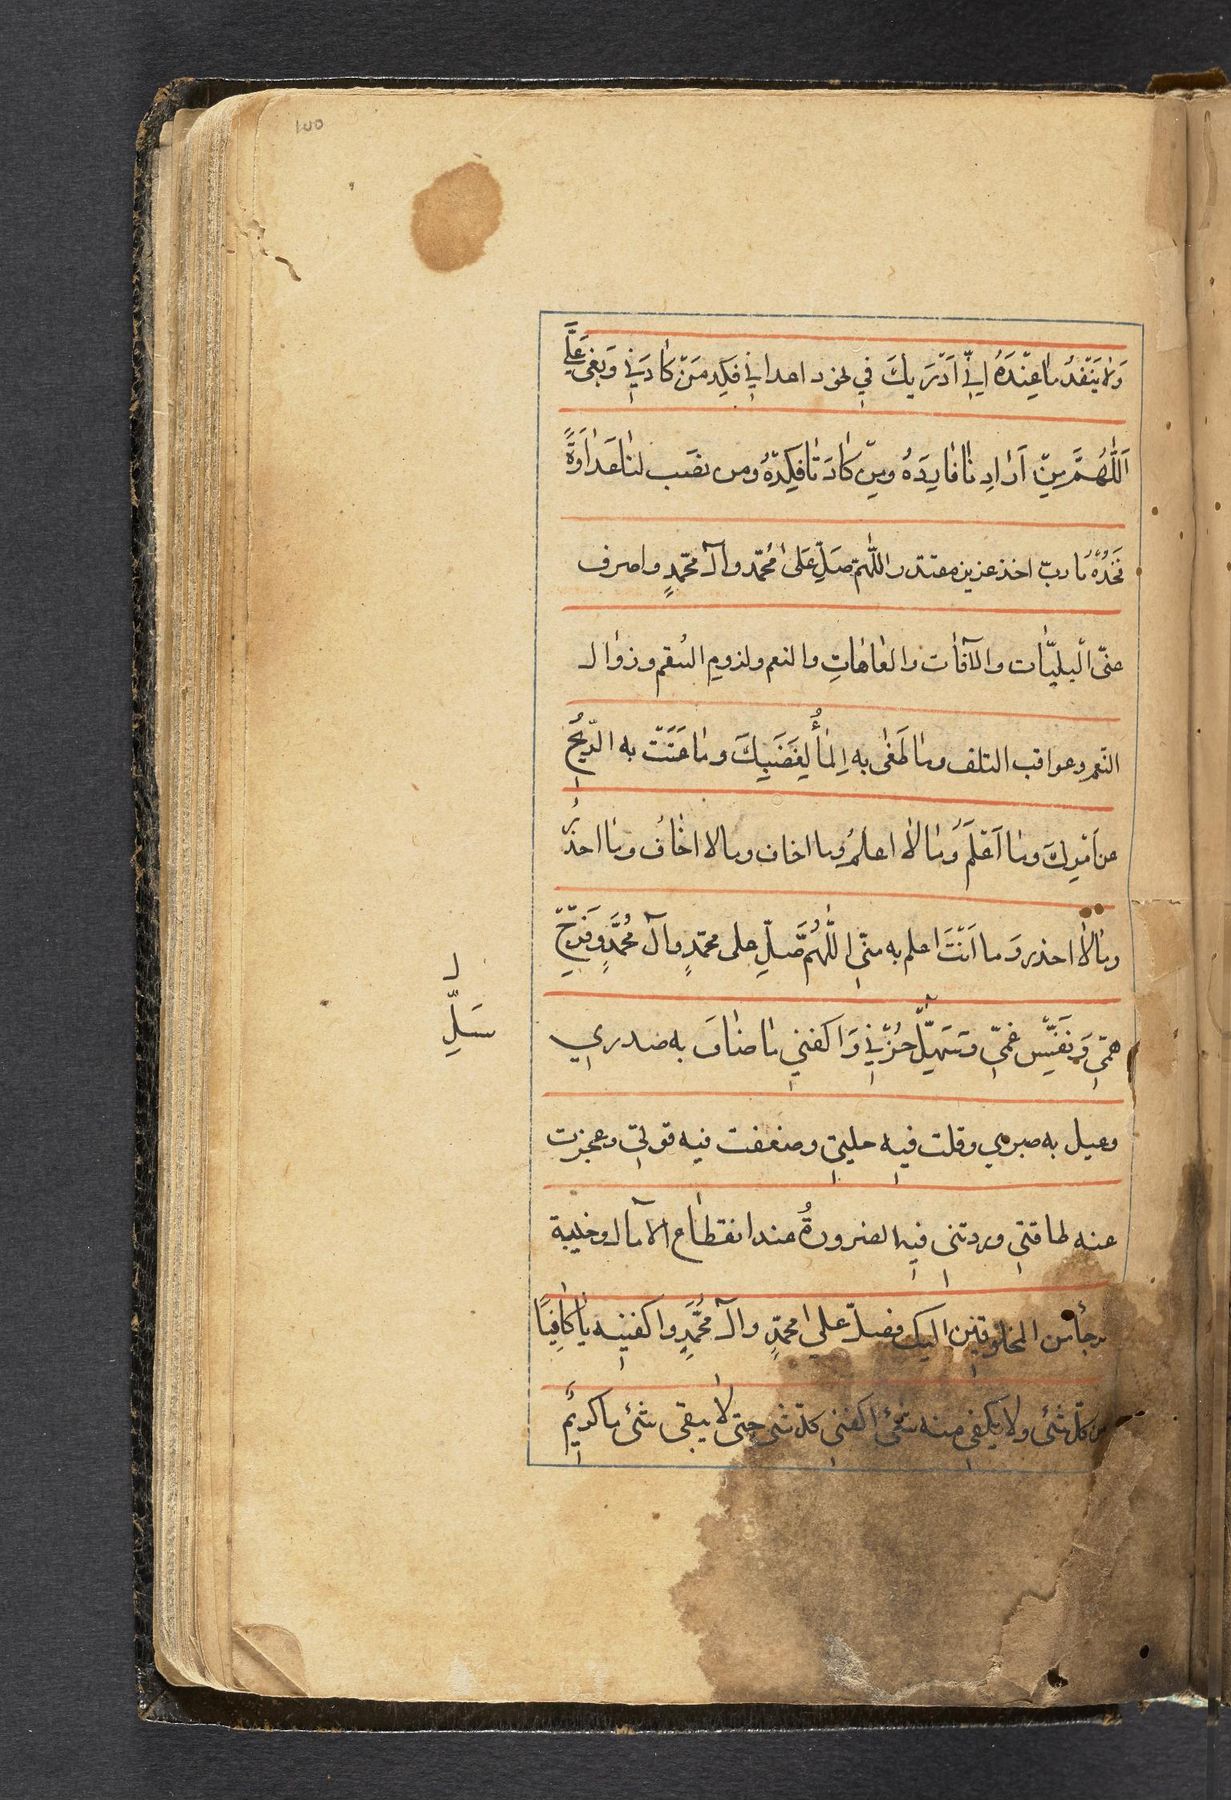 وَلا يَنْفَدُ ما عِنْدَهُ اِنّي اَدْرَءُ بِكَ في نحور اعدائي فكِد مَنْ كادَني وَبَغى عَلَيَّ
اَللّهُمَّ مَنْ اَرادنا فَارِدهُ ومن كادَنا فَكِدْهُ ومن نصَب لنا عَداوَةً
فَخُذْهُ يا ربّ اخذ عزيز مقتدر اللّهمّ صَلِّ عَلى مُحمّد وآلـ محمّدٍ واصرف
عنّى الْبليّات والآفات والعاهاتِ والنقم ولزوم السُقم وزوالـ
النّعم وعواقب التلف وما طَغى به الماءُ لِغَضَبِكَ وما عَتَتْ به الرّيحُ
عن اَمْرِكَ وما اَعْلَمُ وما لا اعلمُ وما اخاف وما لا اخافُ وما احذرُ
وما لا احذر وَما اَنْتَ اعلم به منّي اللّهُمَّ صَّلِّ على محمّدٍ وآلـ مُحمَّدٍ وَفَرِّجْ
همّي وَنَفِّسْ غمّي وَسَهِّلْ حُزْني وَاكفني ما ضاقَ به صدري
وعيل به صبري وقلت فيه حليتي وضعفت فيه قوتي وعجزت
عنه طاقتي وردتني فيه الضرورةُ عند انقطاع الآمال وخيبة
الرجأ من المخلوقين اليك فصلّ على محمّدٍ وآلـ مُحمَّدٍ واكفنيه يا كافِيًا
من كلّ شئ ولا يكفي منه شئ اكفني كلّ شئ حتى لا يبقى شئ يا كريمُ
لـ
سَلِّ
١٥٥